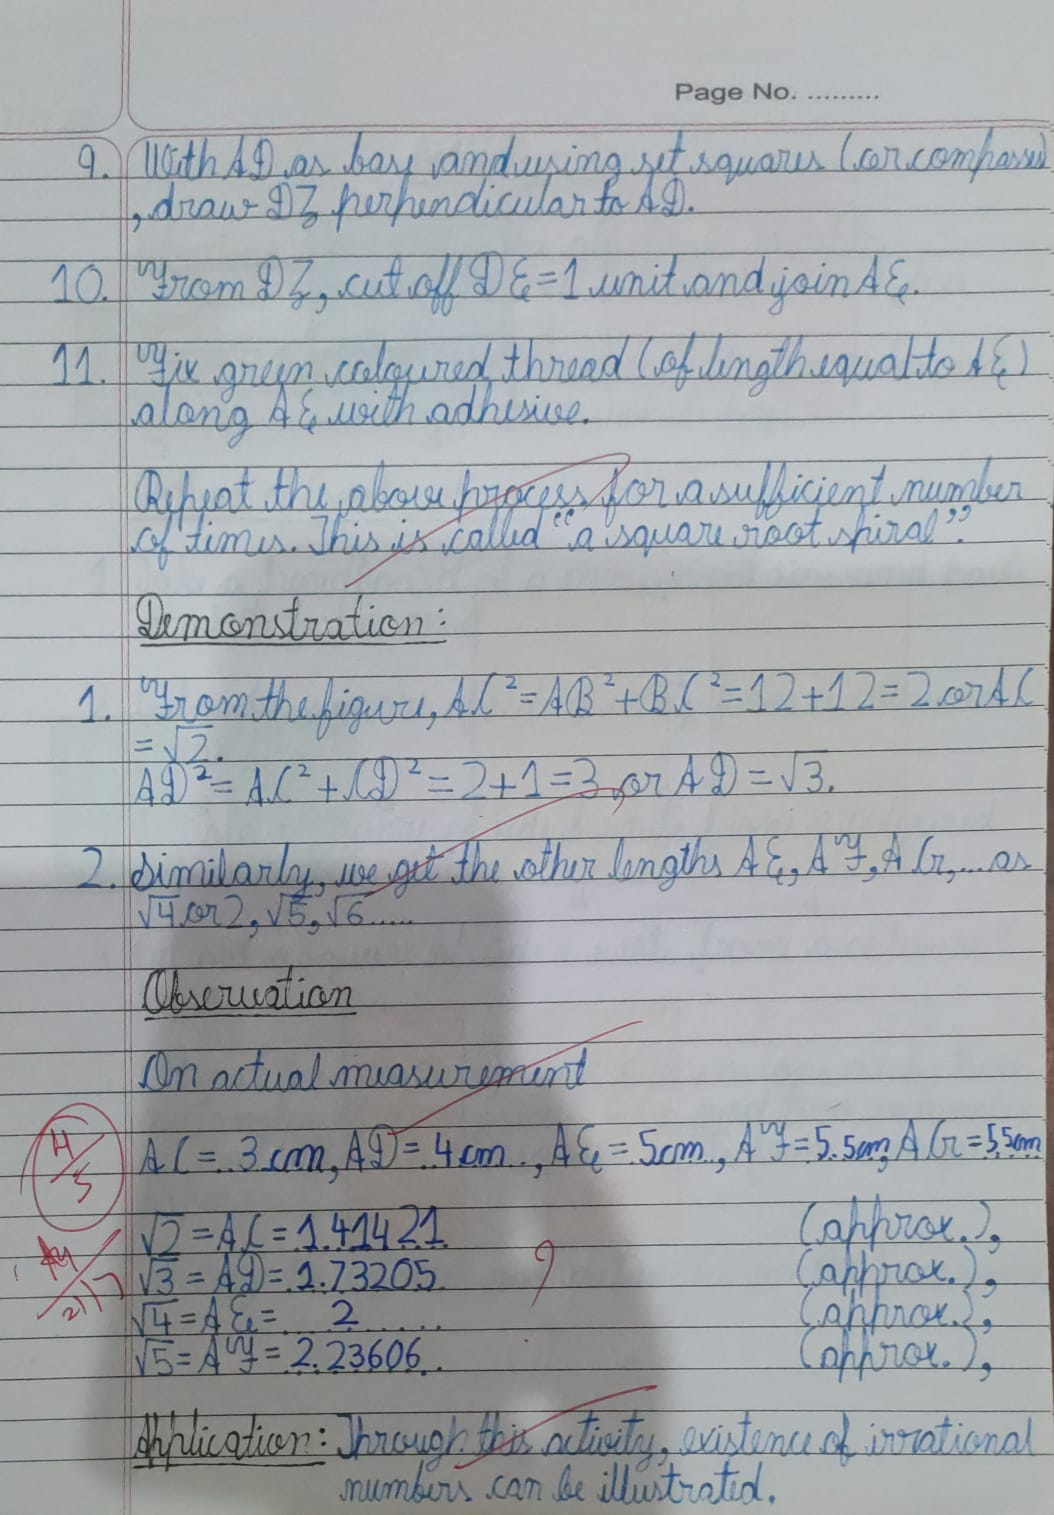 Page No. .........
9. With AD as base and using set squares (or compasses)
, draw DZ perpendicular to AD.
10. From DZ, cut off DE = 1 unit and join AE.
11. Fix green coloured thread (of length equal to AE)
along AE with adhesive.
Repeat the above process for a sufficient number
of times. This is called "a square root spiral".
Demonstration:
1. From the figure, AC² = AB² + BC² = 12 + 12 = 2 or AC
= √2.
AD² = AC² + CD² = 2 + 1 = 3 or AD = √3.
2. Similarly, we get the other lengths AE, AF, AG, ... as
√4 or 2, √5, √6 .....
Observation
On actual measurement
AC = 3 cm, AD = 4 cm .., AE = 5cm .., AF = 5.5cm, AG = 5.5cm
4/5
√2 = AC = 1.41421 (approx.),
√3 = AD = 1.73205 (approx.),
√4 = AE = ... 2 ..... (approx.),
√5 = AF = 2.23606 .. (approx.),
Application: Through this activity, existence of irrational
numbers can be illustrated.